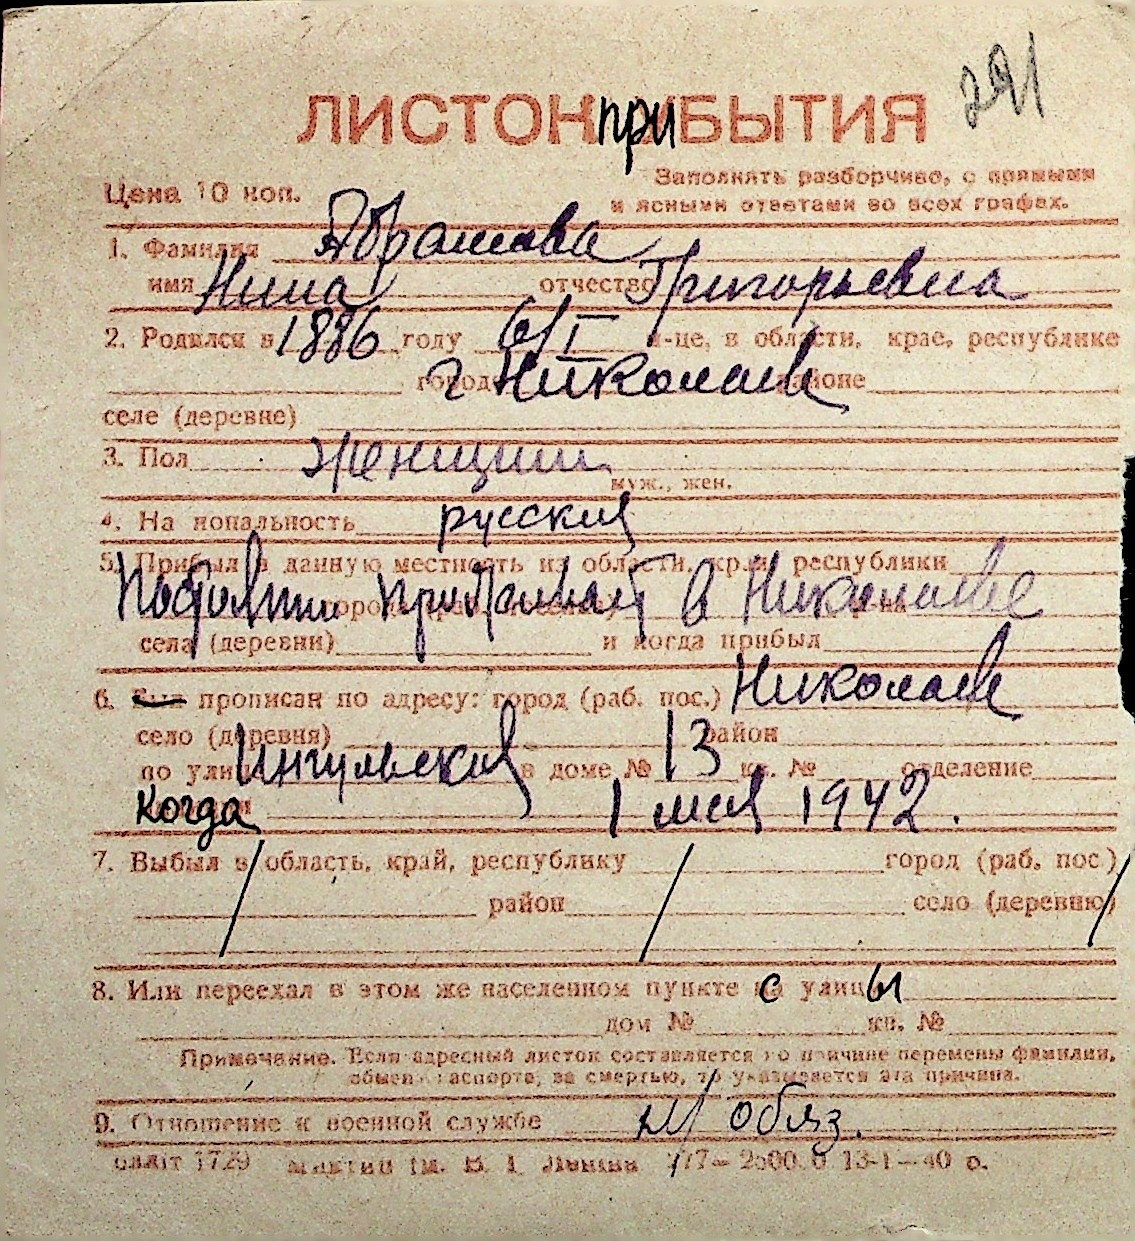 291
ЛИСТОК ПРИБЫТИЯ
Цена 10 коп. Заполнять разборчиво, с прямыми
и ясными ответами во всех графах.
1. Фамилия Абрамова
имя Нина отчество Григорьевна
2. Родился в 1886 году 6/I м-це, в области, крае, республике
городе г Николаев районе
селе (деревне)
3. Пол женщина
муж., жен.
4. Национальность русская
5. Прибыл в данную местность из области, края, республики
Постоянно проживает в Николаеве
села (деревни) и когда прибыл
6. Был прописан по адресу: город (раб. пос.) Николаев
село (деревня) район
по улице Ингульская в доме № 13 кв. № отделение
когда 1 мая 1942.
7. Выбыл в область, край, республику город (раб. пос.)
район село (деревню)
8. Или переехал в этом же населенном пункте с улицы
дом № кв. №
Примечание. Если адресный листок составляется по причине перемены фамилии,
обмена паспорта, за смертью, то указывается эта причина.
9. Отношение к военной службе н/обяз.
1729 777—2500. 13-1—40 р.